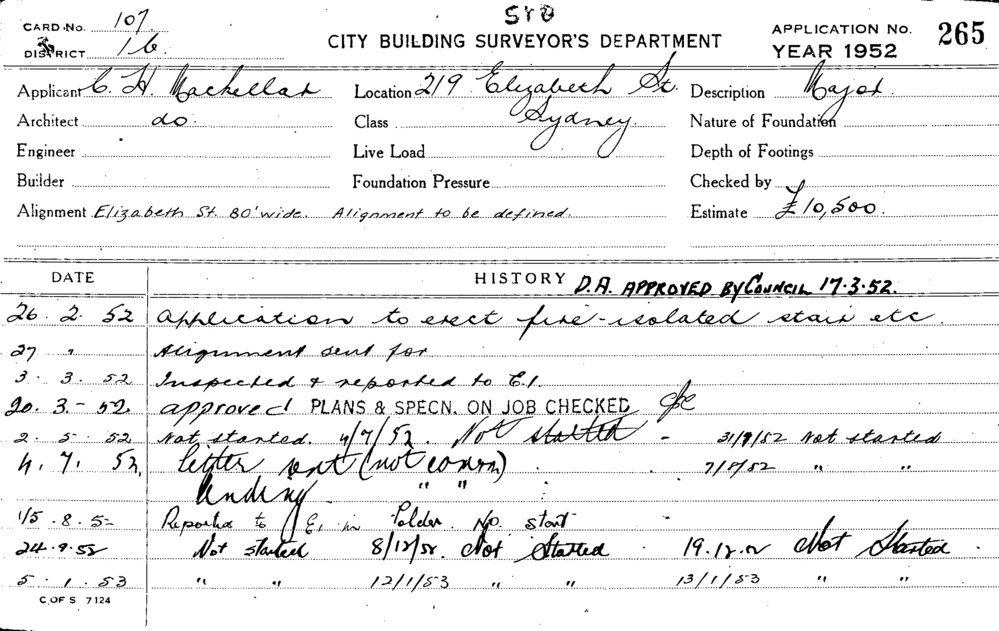 CARD No. 107
DISTRICT 16
CITY BUILDING SURVEYOR'S DEPARTMENT
APPLICATION No. 265
YEAR 1952
Applicant C. H. Mackellar Location 219 Elizabeth St. Sydney. Description Major.
Architect do. Class Nature of Foundation
Engineer Live Load Depth of Footings
Builder Foundation Pressure Checked by
Alignment Elizabeth St. 80' wide. Alignment to be defined. Estimate £10,500.
DATE HISTORY D.A. APPROVED BY COUNCIL 17.3.52.
26.2.52 Application to erect fire-isolated stair etc.
27 " Alignment sent for
3.3.52 Inspected & reported to E.I.
20.3.52 approved PLANS & SPECN. ON JOB CHECKED
2.5.52 Not started. 4/7/52. Not started - Not started
4.7.52 letter sent (not comm) " "
" "
15.8.52 Reported to E.I. in Folder. No start
24.9.52 Not started 8/12/52. Not Started 19.12.52 Not Started
5.1.53 " " 12/1/53 " " 13/1/53 " "
C. OF S 7124